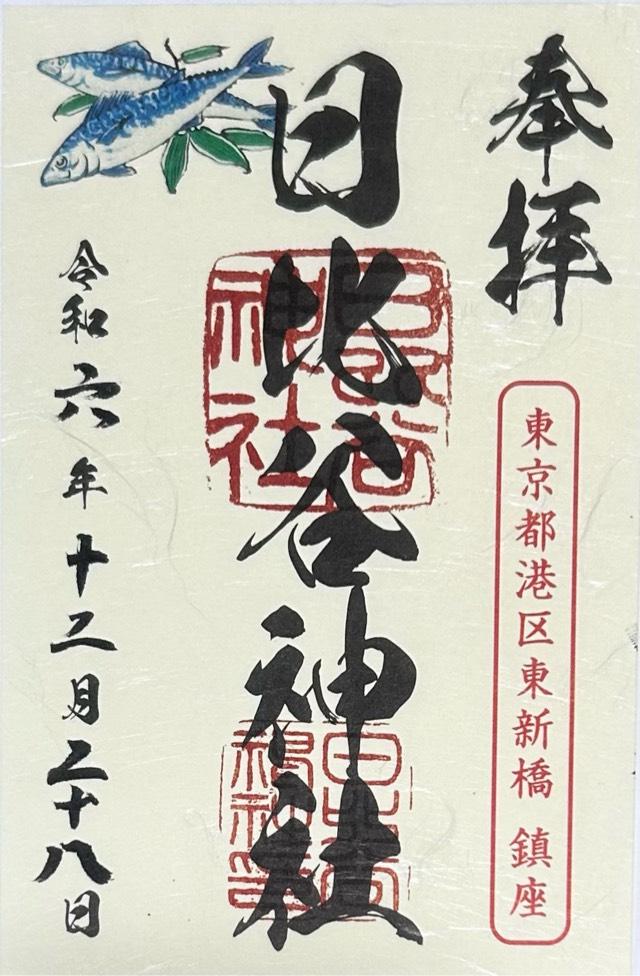 奉拝
東京都港区東新橋 鎮座
日比谷神社
日比谷神社
令和六年十二月二十八日